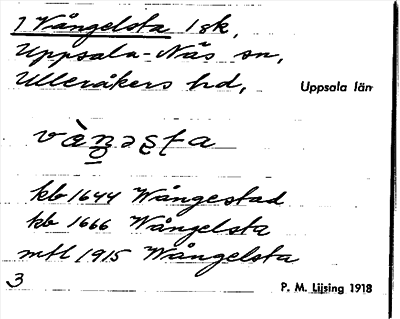 1 Vångelsta 1 sk,
Uppsala-Näs sn,
Ulleråkers hd, Uppsala län
kb 1644 Wångestad
kb 1666 Wångelsta
mtl 1915 Wångelsta
3 P. M. Lijsing 1918